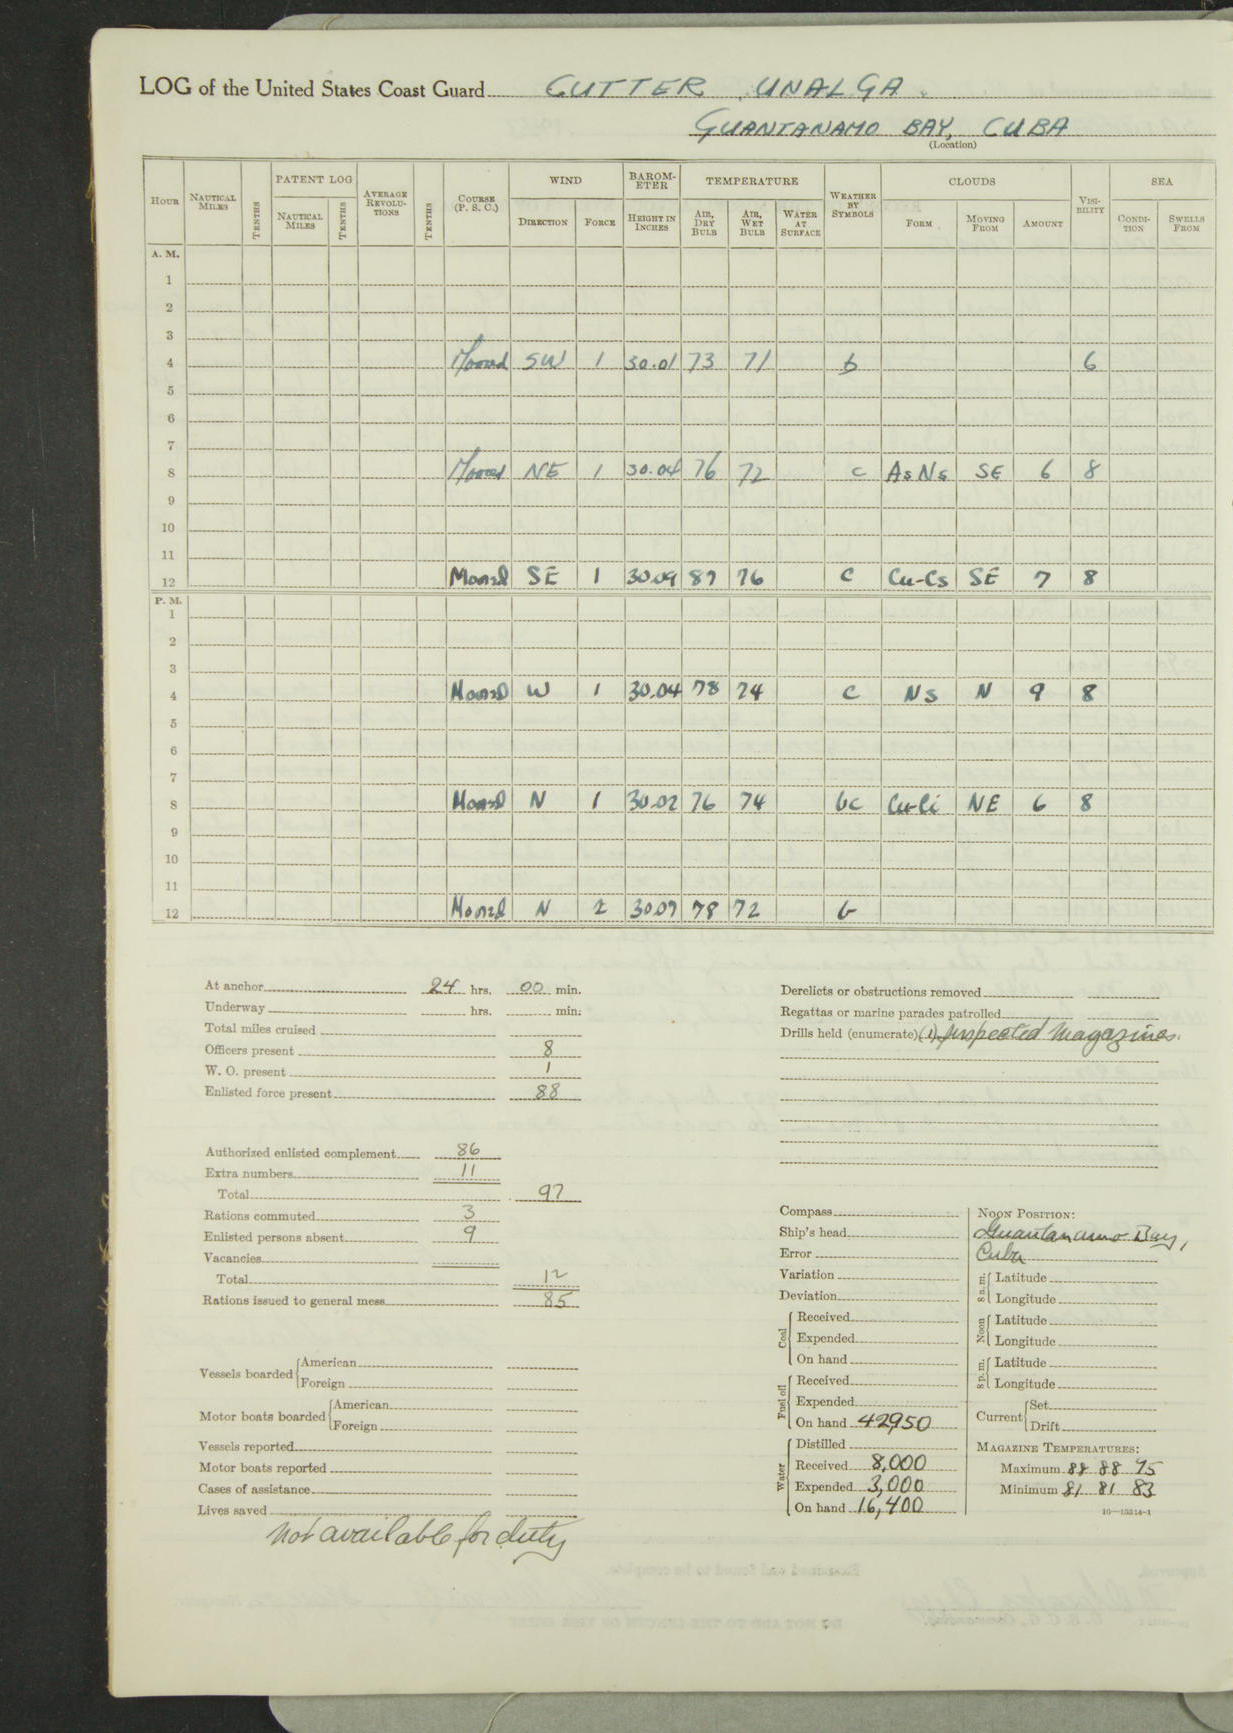 LOG of the United States Coast Guard CUTTER UNALGA.
GUANTANAMO BAY, CUBA
(Location)
HOUR NAUTICAL MILES TENTHS PATENT LOG NAUTICAL MILES TENTHS AVERAGE REVOLUTIONS TENTHS COURSE (P. S. C.) WIND DIRECTION FORCE BAROMETER HEIGHT IN INCHES TEMPERATURE AIR, DRY BULB AIR, WET BULB WATER AT SURFACE WEATHER BY SYMBOLS CLOUDS FORM MOVING FROM AMOUNT VISIBILITY SEA CONDITION SWELLS FROM
A. M.
1
2
3
4 Moored SW 1 30.01 73 71 b 6
5
6
7
8 Moored NE 1 30.04 76 72 c AsNs SE 6 8
9
10
11
12 Moored SE 1 30.09 87 76 c Cu-Cs SE 7 8
P. M.
1
2
3
4 Moored W 1 30.04 78 74 c Ns N 9 8
5
6
7
8 Moored N 1 30.02 76 74 bc Cu-Ci NE 6 8
9
10
11
12 Moored N 2 30.07 78 72 b
At anchor 24 hrs. 00 min.
Underway hrs. min.
Total miles cruised
Officers present 8
W. O. present 1
Enlisted force present 88
Authorized enlisted complement 86
Extra numbers 11
Total 97
Rations commuted 3
Enlisted persons absent 9
Vacancies
Total 12
Rations issued to general mess 85
Vessels boarded American
Foreign
Motor boats boarded American
Foreign
Vessels reported
Motor boats reported
Cases of assistance
Lives saved
Not available for duty
Derelicts or obstructions removed
Regattas or marine parades patrolled
Drills held (enumerate) (1) Inspected Magazines.
Compass
Ship's head
Error
Variation
Deviation
Coal Received
Expended
On hand
Fuel oil Received
Expended
On hand 42,950
Water Distilled
Received 8,000
Expended 3,000
On hand 16,400
NOON POSITION:
Guantanamo Bay,
Cuba
8 a.m. Latitude
Longitude
Noon Latitude
Longitude
8 p.m. Latitude
Longitude
Current Set
Drift
MAGAZINE TEMPERATURES:
Maximum 88 88 95
Minimum 81 81 83
16—13214-1